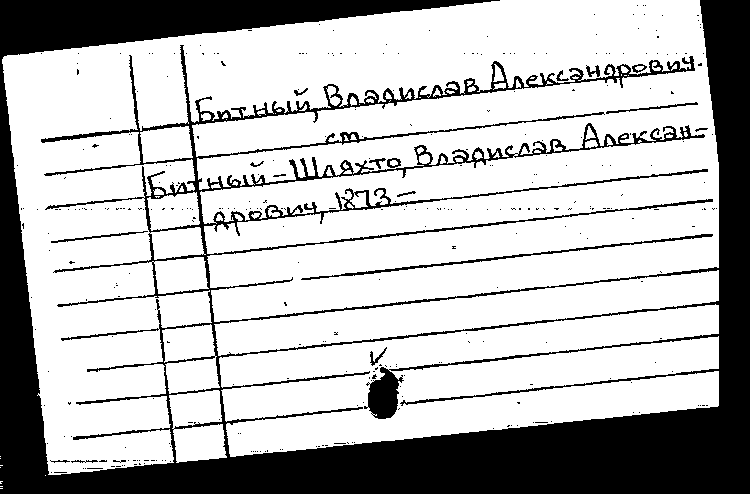 Битный, Владислав Александрович.
см.
Битный-Шляхто, Владислав Алексан-
дрович, 1873-